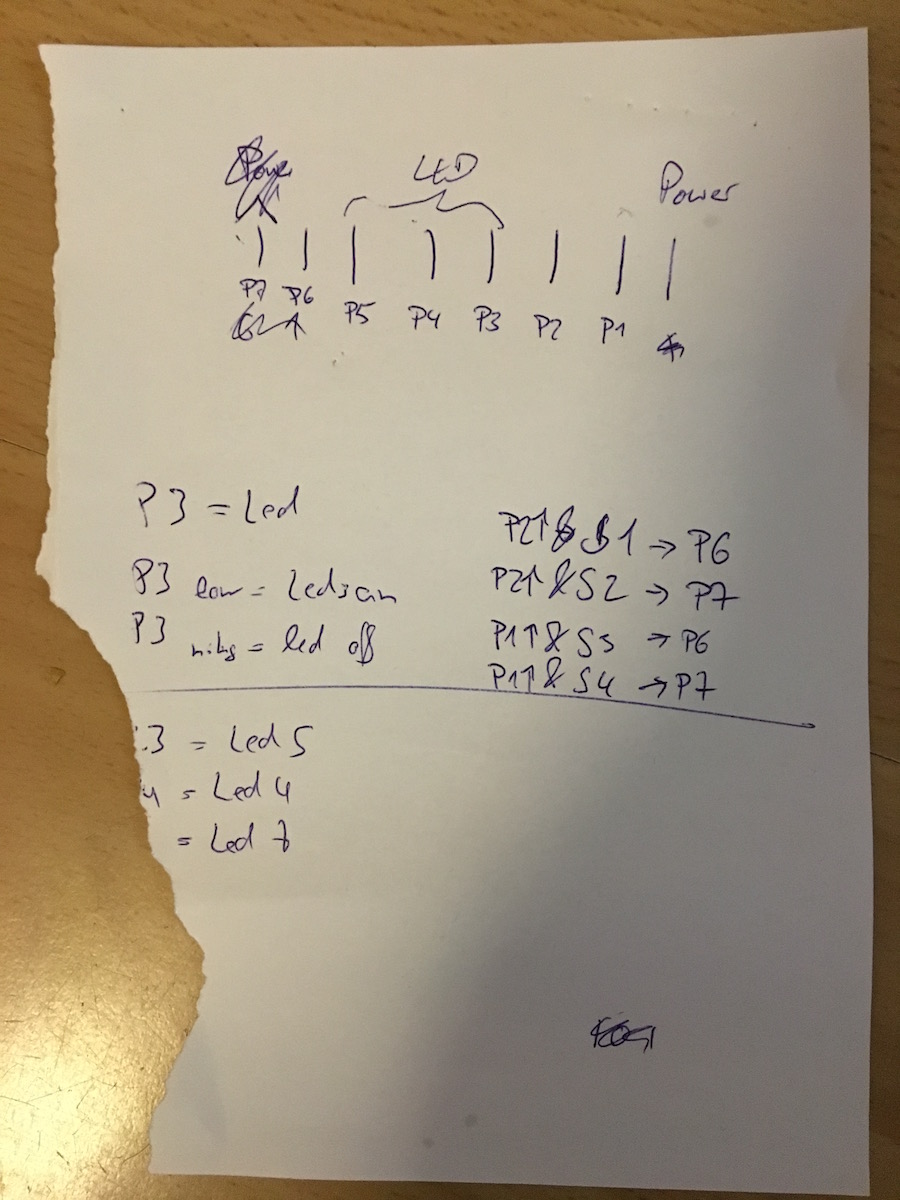 LED
Power
P7 P6 P5 P4 P3 P2 P1
P3 = Led
P3 low =
P3 = led off
P2↑ & S1 → P6
P2↑ & S2 → P7
P1↑ & S3 → P6
P1↑ & S4 → P7
3 = Led 5
4 = Led 4
= Led